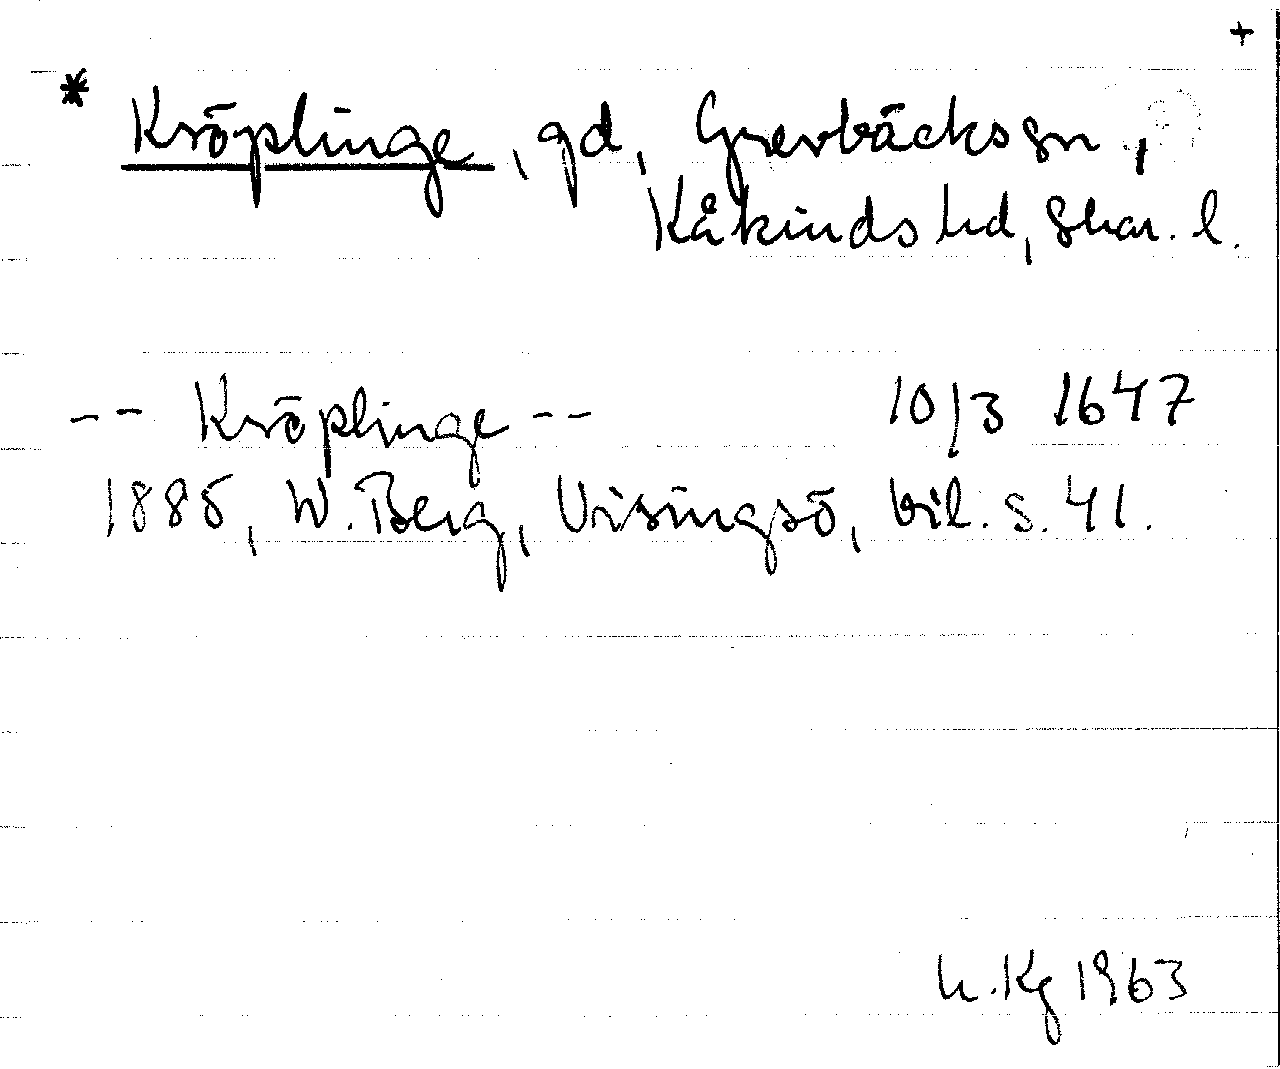 +
* Kröplinge, gd, Grevbäcks sn,
Kåkinds hd, Skar. l.
-- Kröplinge -- 10/3 1647
1885, W. Berg, Visingsö, bil. s. 41.
h. Kg 1963